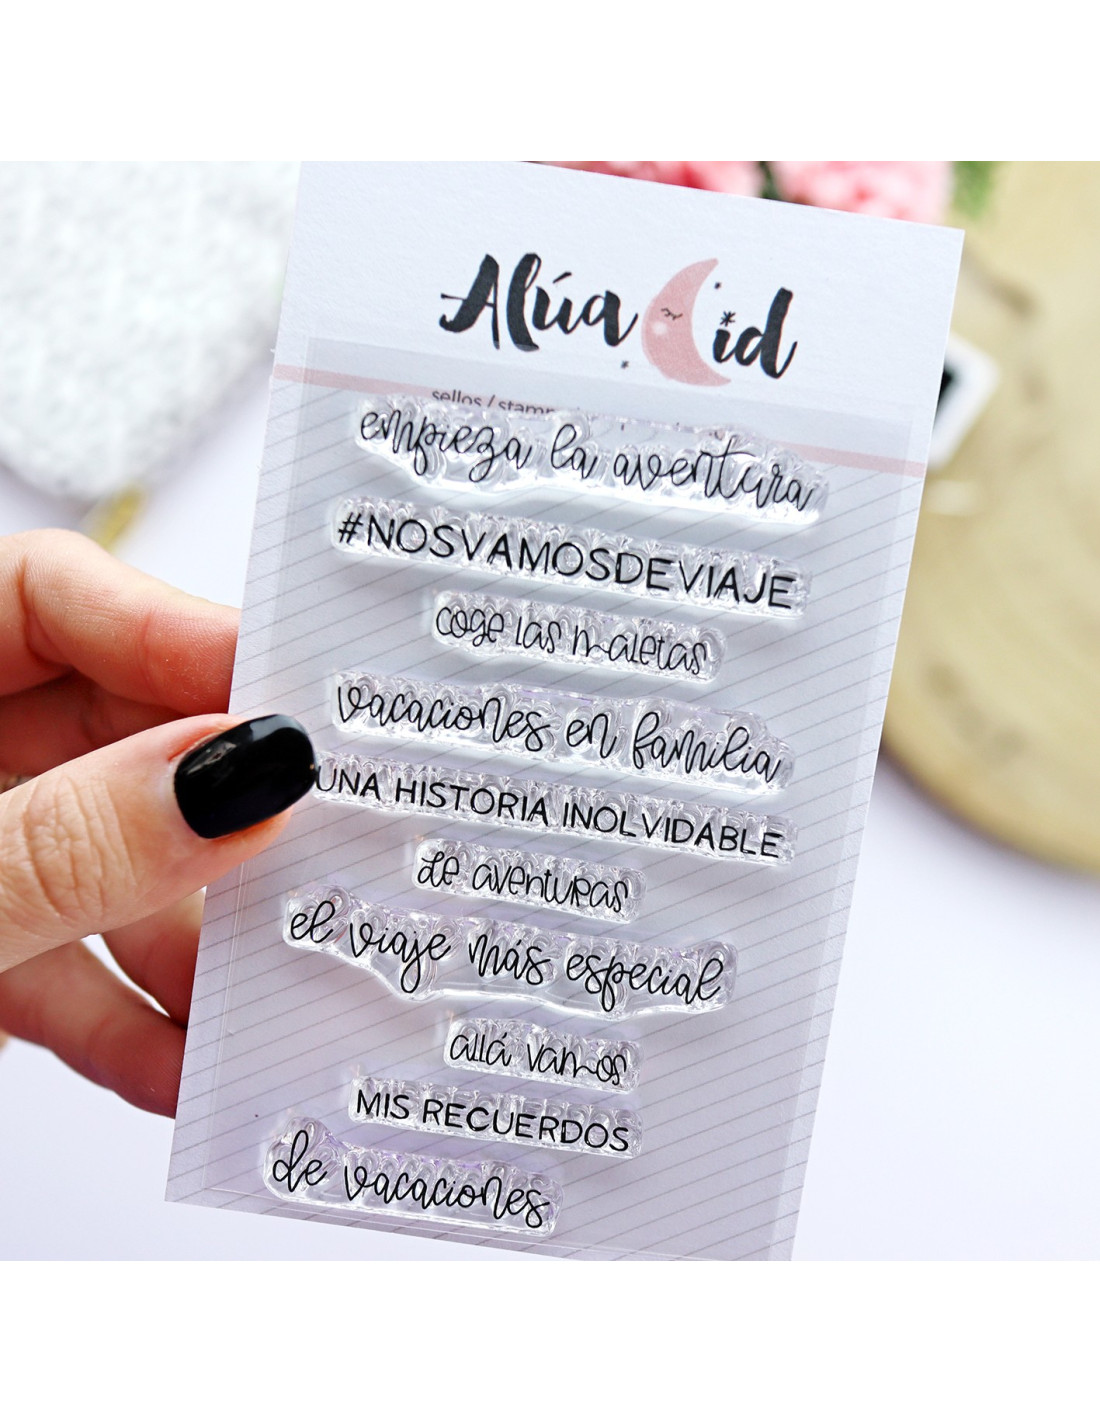 Alúa Cid
sellos / stamps
empieza la aventura
#NOSVAMOSDEVIAJE
coge las maletas
vacaciones en familia
UNA HISTORIA INOLVIDABLE
de aventuras
el viaje más especial
allá vamos
MIS RECUERDOS
de vacaciones